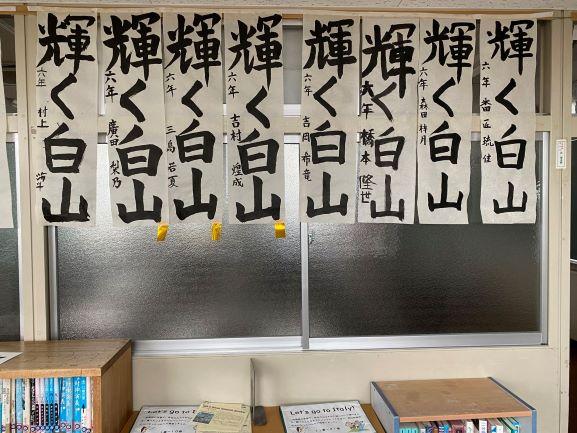 輝く白山
六年 村上
輝く白山
六年 廣田 梨乃
輝く白山
六年 三島 若夏
輝く白山
六年 吉村 煌成
輝く白山
六年 吉岡 希竜
輝く白山
六年 橋本 隆世
輝く白山
六年 森田 梓月
輝く白山
六年 番匠 琉佳
Let's go to Italy!
Let's go to Italy!